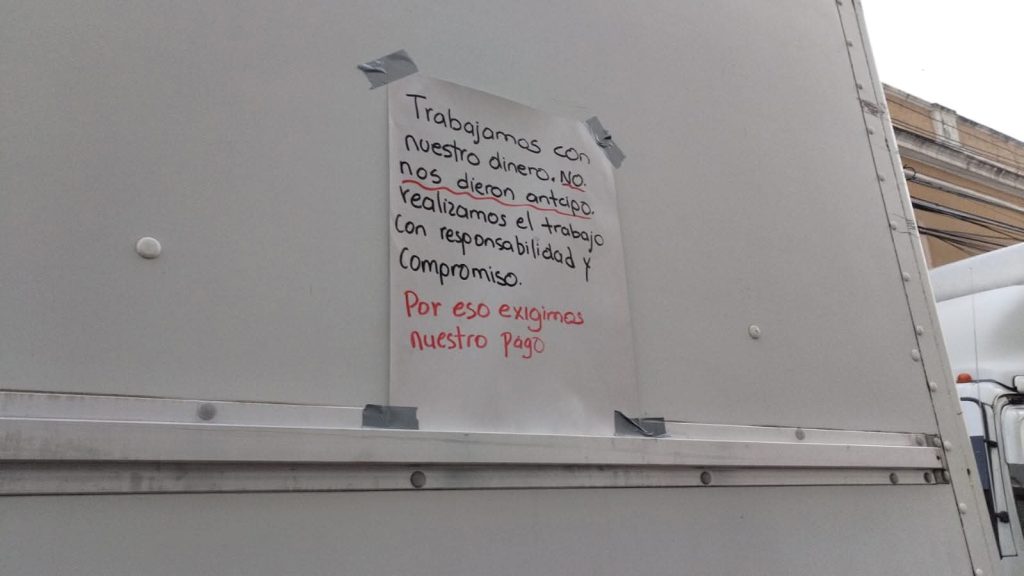 Trabajamos con
nuestro dinero. NO.
nos dieron antcipo.
realizamos el trabajo
con responsabilidad y
compromiso.
Por eso exigimos
nuestro pago